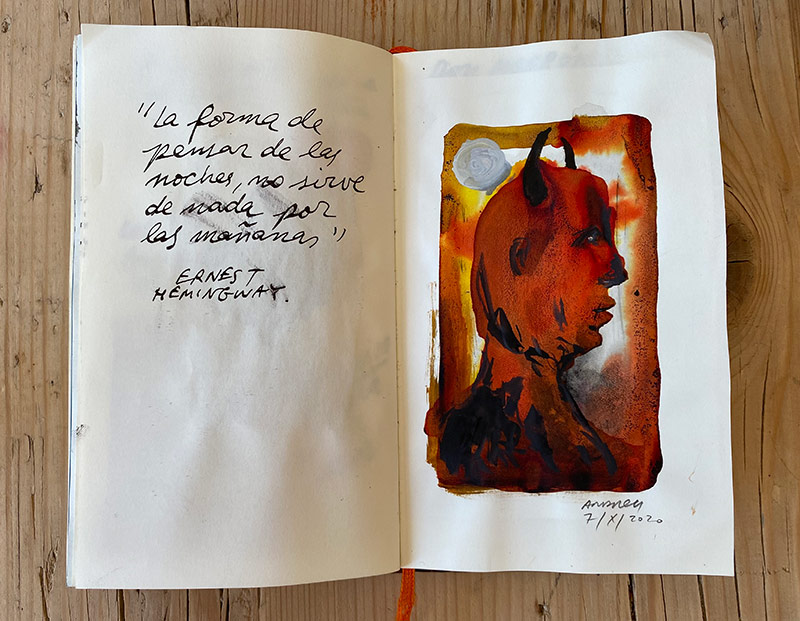 "La forma de
pensar de las
noches, no sirve
de nada por
las mañanas"
ERNEST
HEMINGWAY.
ANDREU
7/X/2020